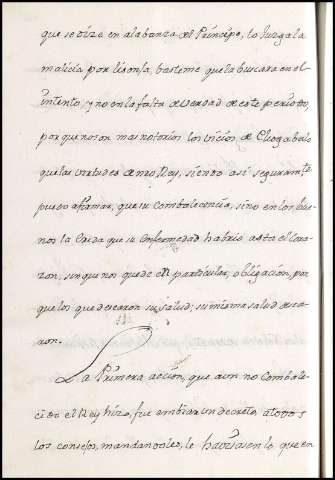 que se dize en alabanza del Principe, lo Juzga la
malicia por lisonja, basteme que la buscara en el
intento, y no en la falta de verdad de este periodo,
porque no son mas notorios los vicios de Eliogabalo
que las virtudes de nro Rey, siendo asi seguramte
puedo afirmar, que su Combalecencia, sino en los bue-
nos la Caida que su enfermedad hauia el Cora-
zon, sin que nos quede en particular, obligacion, por
que los que desearon su salud; su misma salud desea-
ron.
La Primera acción, que aun no Combale-
cido el Rey hizo, fue embiar un decreto a todos
los consejos, mandandoles, le en lo que en